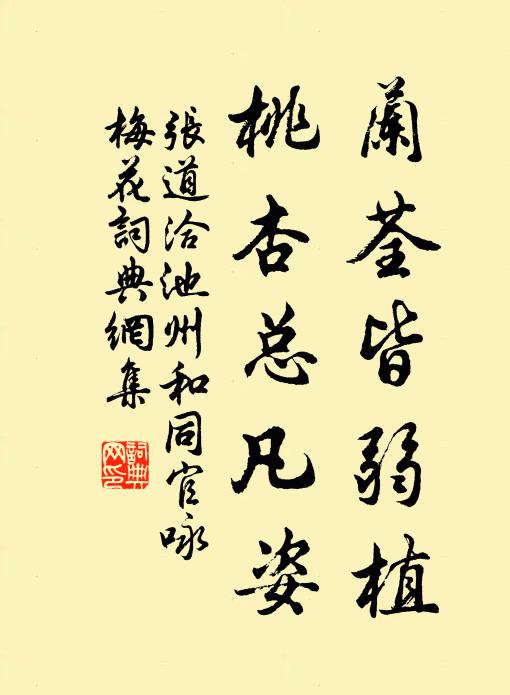 蘭荃皆弱植
桃杏总凡姿
張道洽池州和同官咏
梅花詞典網集
詞典网印